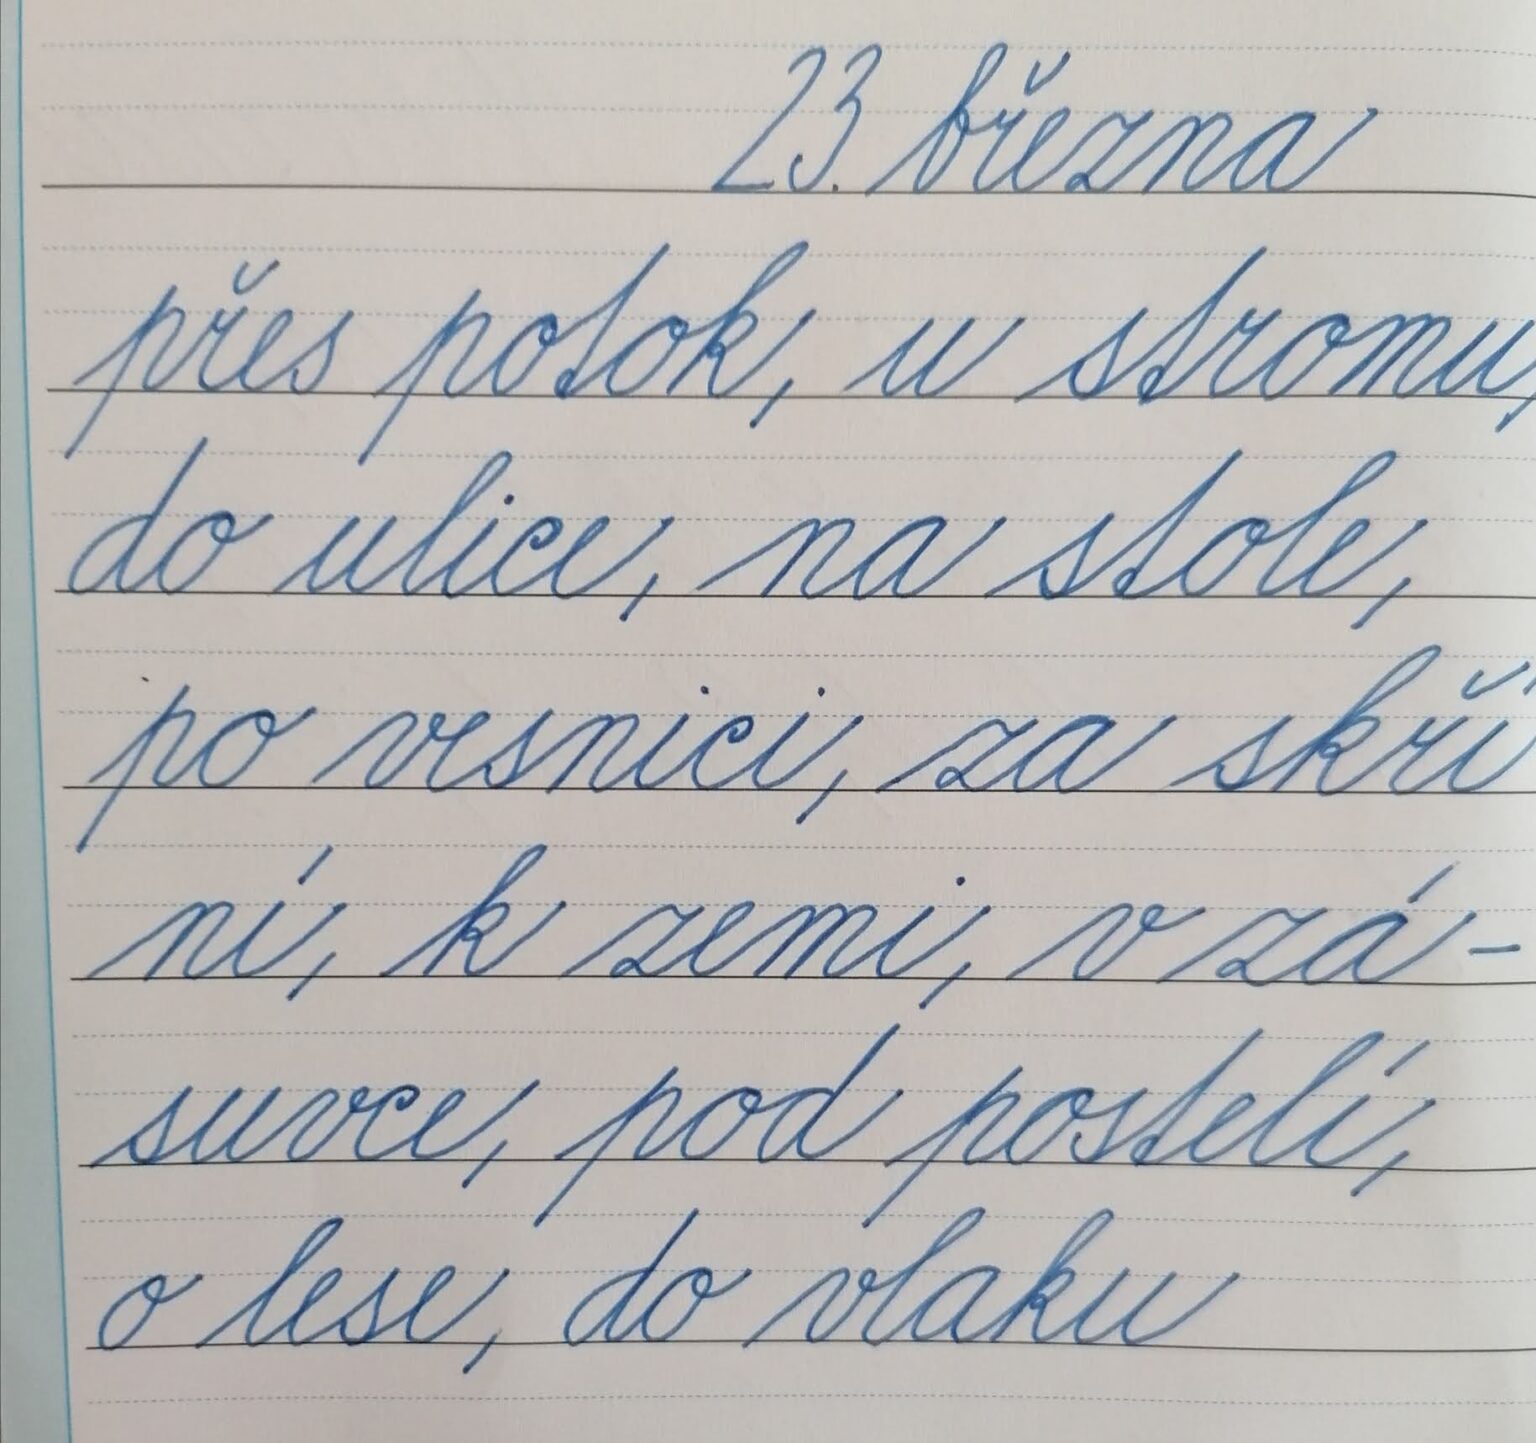 23. března
přes potok, u stromu,
do ulice, na stole,
po vesnici, za skří
ní, k zemi, v zá-
suvce, pod postelí,
o lese, do vlaku